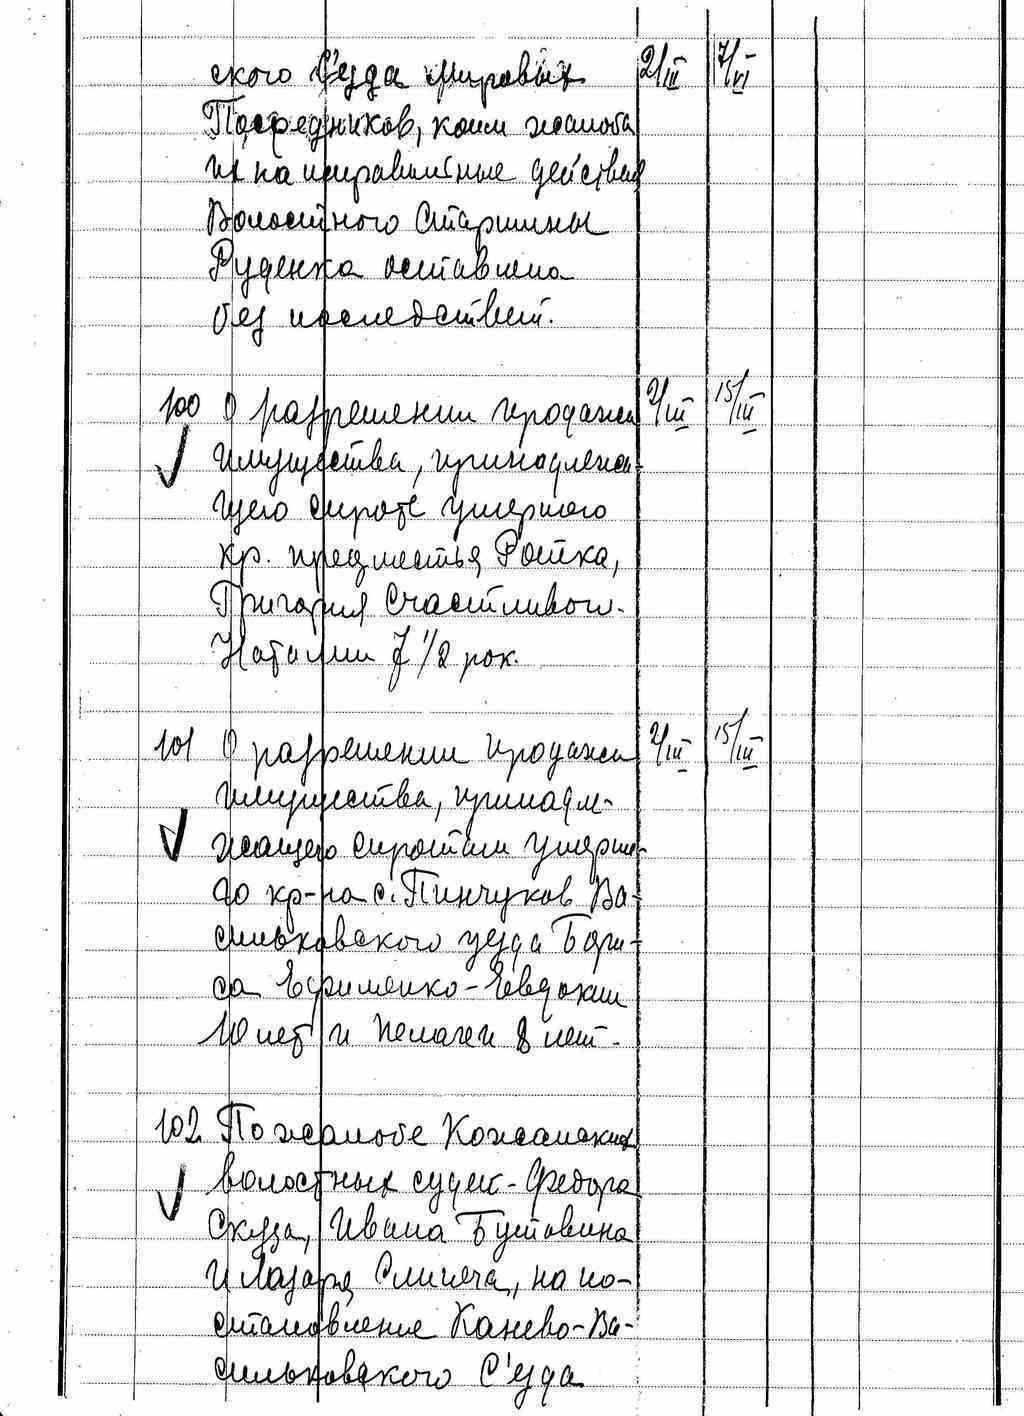 ского С'езда мировых 2/III 7/VI
Посредников, коим жалоба
их на неправильные действия
Волостного Старшины
Руденка оставлена
без последствий.
100 О разрешении продажи 2/III 15/III
имущества, принадлежа-
щего сироте умершего
кр. предместья Роитка,
Григория Счастливого-
Наталии 7 1/2 рок.
101 О разрешении продажи 2/III 15/III
имущества, принадле-
жащего сиротам умерше-
го кр-на с. Пинчуков Ва-
сильковского уезда Бори-
са Ефименко-Евдокии
10 лет и Пелагеи 8 лет-
102 По жалобе Кожанских
волостных судей-Федора
Скуза, Ивана Бутовина
и Лазаря на по-
становление Канево-Ва-
сильковского С'езда